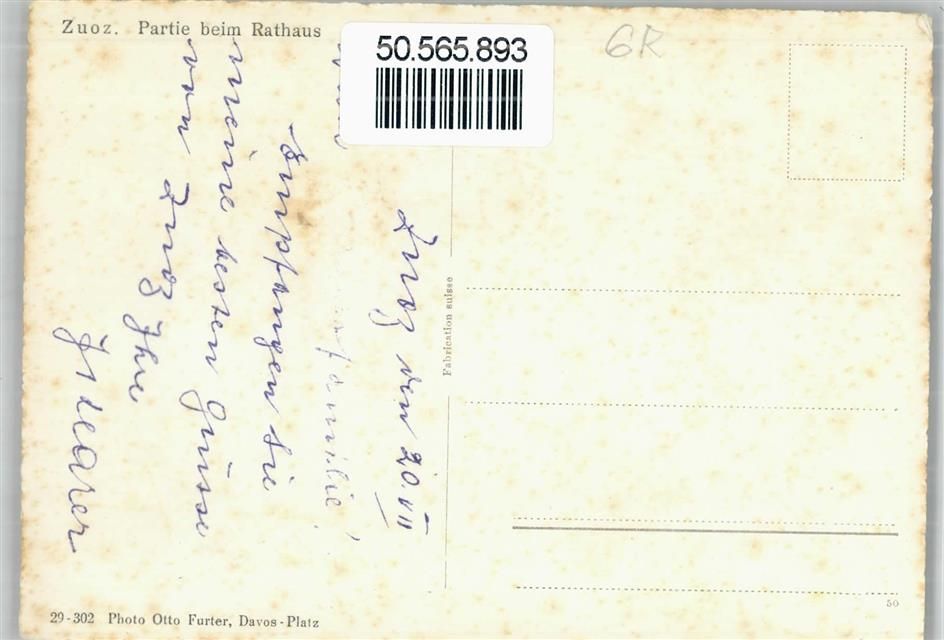 Zuoz. Partie beim Rathaus
50.565.893
GR
Zuoz den 20. VII
familie!
Empfangen Sie
meine besten Grüsse
von Zuoz Ihre
Fabrication suisse
50
29-302 Photo Otto Furter, Davos-Platz